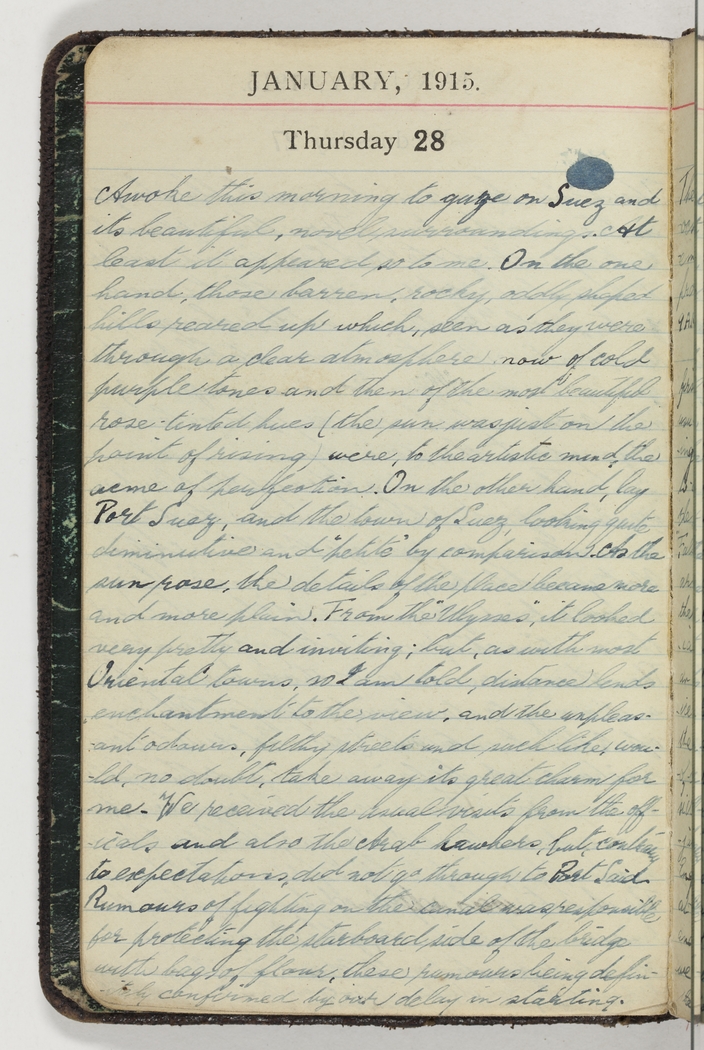 JANUARY, 1915.
Thursday 28
Awoke this morning to gaze on Suez and
its beautiful, novel surroundings. At
least it appeared so to me. On the one
hand, those barren, rocky, oddly shaped
hills reared up which, seen as they were
through a clear atmosphere now of cold
purple tones and then of the most beautiful
rose-tinted hues (the sun was just on the
point of rising) were, to the artistic mind, the
acme of perfection. On the other hand, lay
Port Suez, and the town of Suez, looking quite
diminutive and "petite" by comparison. As the
sun rose, the details of the place became more
and more plain. From the "Ulysses", it looked
very pretty and inviting; but, as with most
Oriental towns, so I am told, distance lends
enchantment to the view, and the unpleas-
ant odours, filthy streets and such like, wou-
-ld, no doubt, take away its great charm for
me. We received the usual visits from the off-
-icals and also the Arab hawkers, but, contrary
to expectations, did not go through to Port Said
Rumours of fighting on the canal was responsible
for protecting the starboard side of the bridge
with bags of flour, these rumours being defin-
confirmed by our delay in starting.